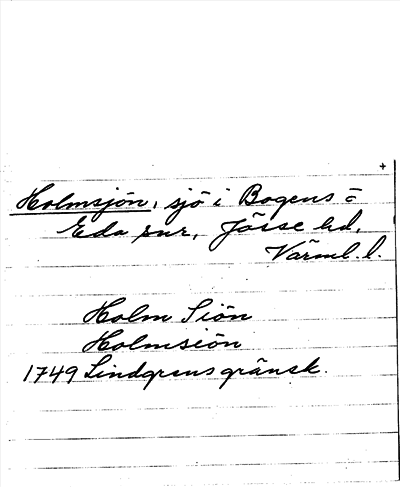 +
Holmsjön, sjö i Bogens o
Eda snr, Jösse hd,
Värml. l.
Holm Siön
Holmseiön
1749 Lindgrens gränsk.